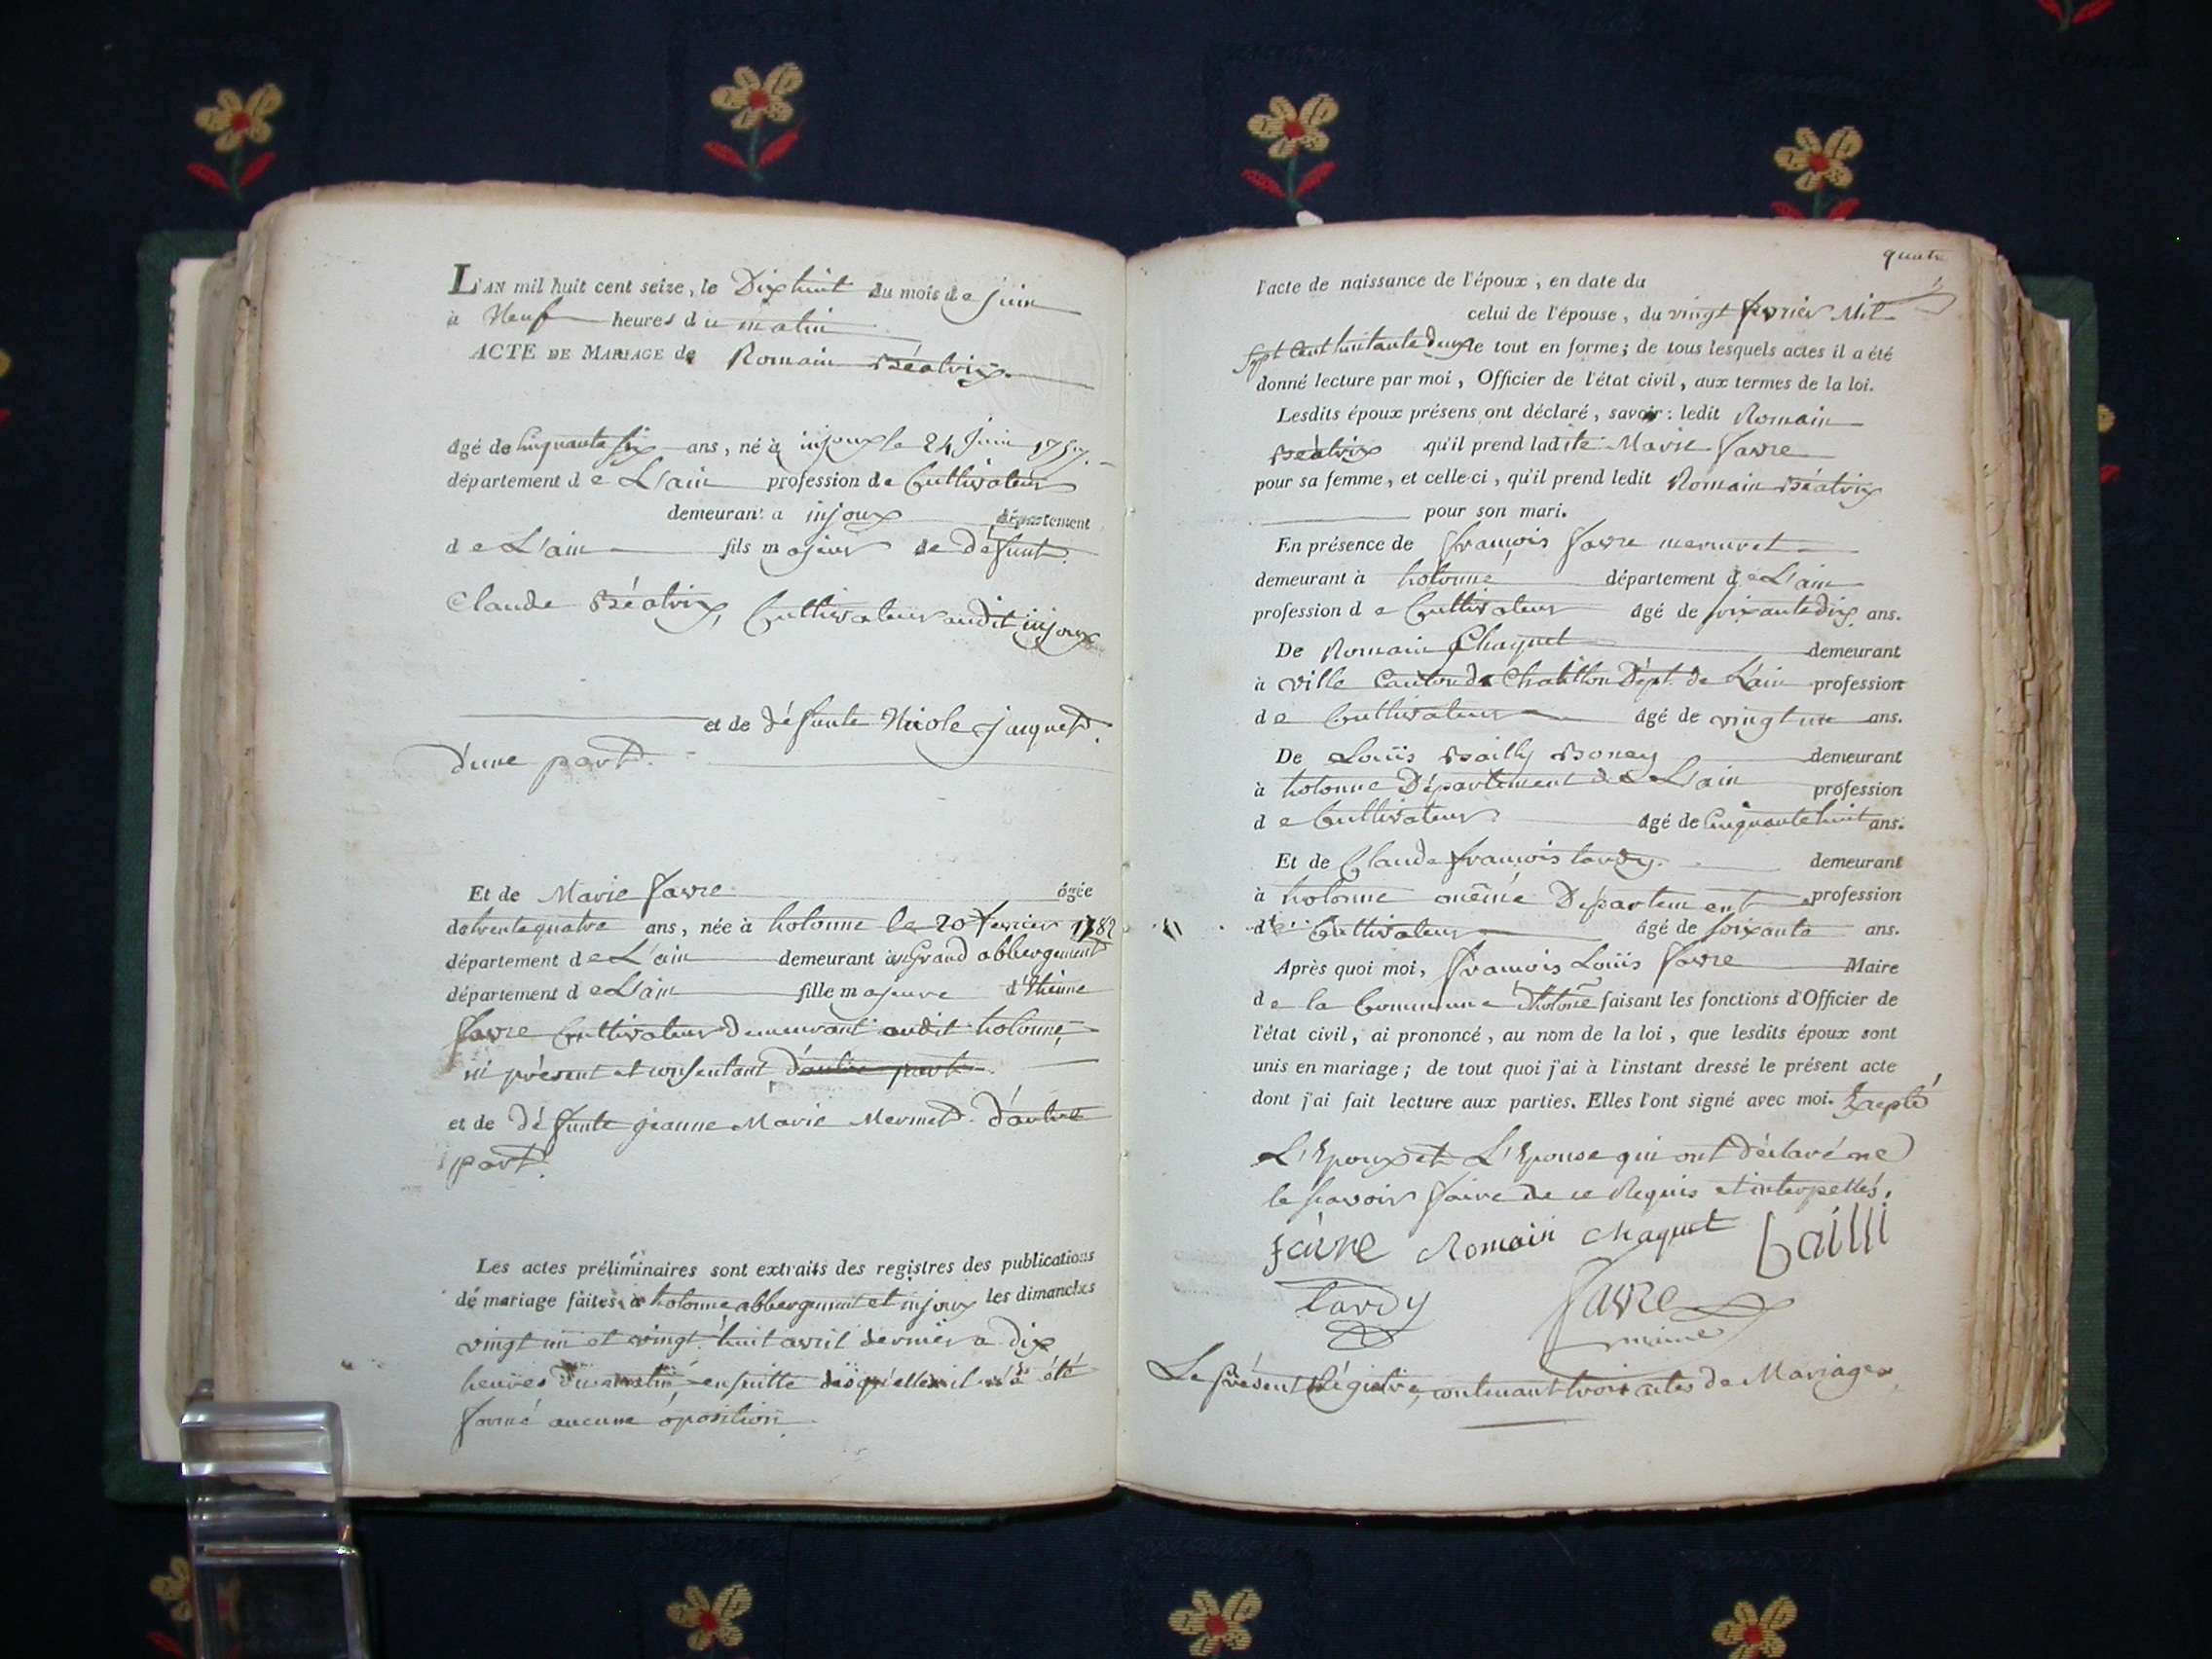 L'AN mil huit cent seize, le Dix huit du mois de juin
à Neuf heures du matin
ACTE DE MARIAGE de Romain Béatrix
âgé de Cinquante six ans, né à injoux le 24 Juin
département de L'ain profession de Cultivateur
demeurant a injoux département
de L'ain fils majeur de défunt
Claude Béatrix, Cultivateur audit injoux
et de défunte Nicole jaquet
d'une part.
Et de Marie favre âgée
de trente quatre ans, née à hotonne le 20 fevrier 1782
département de L'ain demeurant au Grand abbergement
département de L'ain fille majeure d'
favre Cultivateur demeurant audit hotonne,
ici présent et consentant, d'autre part
et de défunte jeanne Marie Mermet d'autre
part.
Les actes préliminaires sont extraits des registres des publications
de mariage faites à hotonne abbergement et injoux les dimanches
vingt un et vingt huit avril dernier a dix
heures du matin, ensuitte desquelles il n'a été
formé aucune oposition
quatre
l'acte de naissance de l'époux, en date du
celui de l'épouse, du vingt fevrier Mil
sept Cent huitante deux le tout en forme; de tous lesquels actes il a été
donné lecture par moi, Officier de l'état civil, aux termes de la loi.
Lesdits époux présens ont déclaré, savoir: ledit Romain
Béatrix qu'il prend ladite Marie favre
pour sa femme, et celle-ci, qu'il prend ledit Romain Béatrix
pour son mari.
En présence de françois favre
demeurant à hotonne département de L'ain
profession de Cultivateur âgé de soixante dix ans.
De Romain Chaquet demeurant
à ville Canton de Chatillon Dépt. de L'ain profession
de Cultivateur âgé de vingt un ans.
De Louis Bailly demeurant
à hotonne Département de L'ain profession
de Cultivateur âgé de Cinquante huit ans.
Et de Claude françois tardy. demeurant
à hotonne même Departement profession
de Cultivateur âgé de soixante ans.
Après quoi moi, françois Louis favre Maire
de la Commune d'hotonne faisant les fonctions d'Officier de
l'état civil, ai prononcé, au nom de la loi, que lesdits époux sont
unis en mariage; de tout quoi j'ai à l'instant dressé le présent acte
dont j'ai fait lecture aux parties. Elles l'ont signé avec moi.
L'Epoux et L'Epouse qui ont déclaré ne
le savoir faire de ce Requis et interpellés.
favre Romain chaquet bailli
tardy favre
maire
Le présent Régistre, contenant trois actes de Mariages